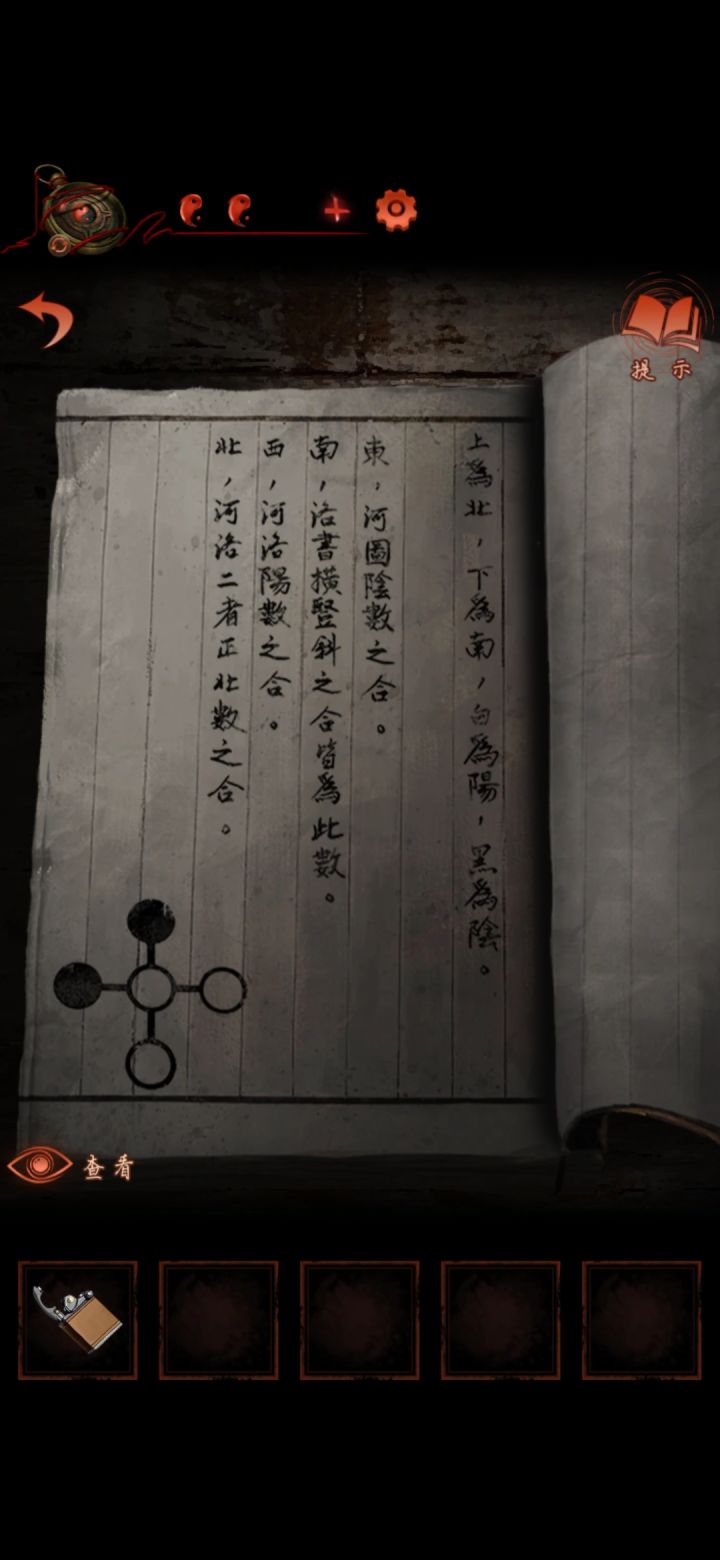 提示
上為北，下為南，白為陽，黑為陰。
東，河圖陰數之合。
南，洛書橫豎斜之合皆為此數。
西，河洛陽數之合。
北，河洛二者正北數之合。
查看